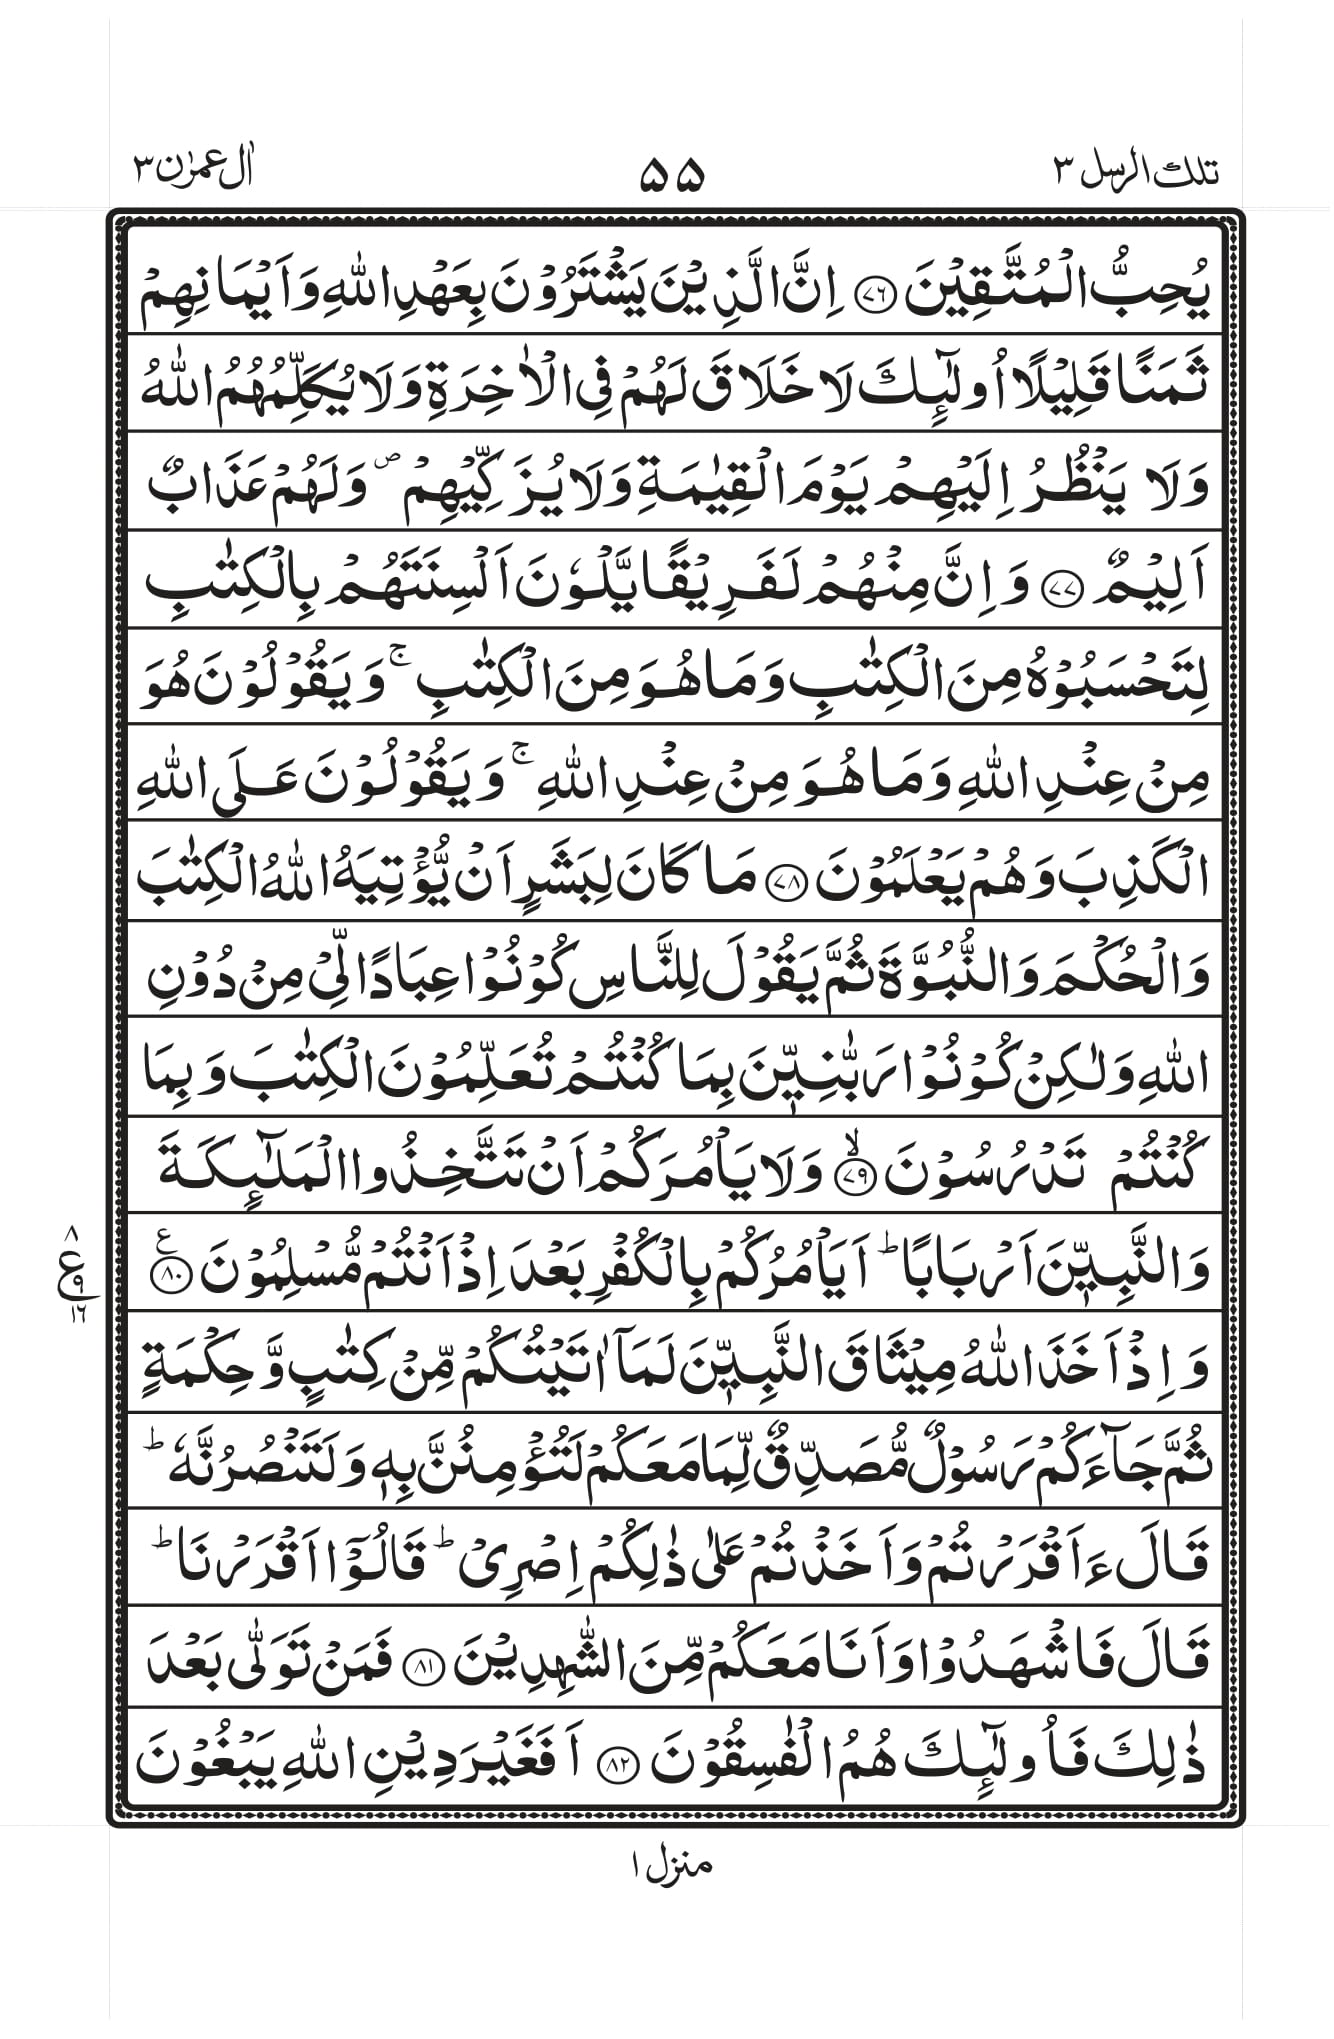 تلك الرسل ٣
۵۵
اٰل عمرٰن ٣
يُحِبُّ الۡمُتَّقِيۡنَ ﴿۷۶﴾ اِنَّ الَّذِيۡنَ يَشۡتَرُوۡنَ بِعَهۡدِ اللّٰهِ وَاَيۡمَانِهِمۡ
ثَمَنًا قَلِيۡلًا اُولٰٓئِكَ لَا خَلَاقَ لَهُمۡ فِى الۡاٰخِرَةِ وَلَا يُكَلِّمُهُمُ اللّٰهُ
وَلَا يَنۡظُرُ اِلَيۡهِمۡ يَوۡمَ الۡقِيٰمَةِ وَلَا يُزَكِّيۡهِمۡ ۖ وَلَهُمۡ عَذَابٌ
اَلِيۡمٌ ﴿۷۷﴾ وَاِنَّ مِنۡهُمۡ لَفَرِيۡقًا يَّلۡوٗنَ اَلۡسِنَتَهُمۡ بِالۡكِتٰبِ
لِتَحۡسَبُوۡهُ مِنَ الۡكِتٰبِ وَمَا هُوَ مِنَ الۡكِتٰبِ ۚ وَيَقُوۡلُوۡنَ هُوَ
مِنۡ عِنۡدِ اللّٰهِ وَمَا هُوَ مِنۡ عِنۡدِ اللّٰهِ ۚ وَيَقُوۡلُوۡنَ عَلَى اللّٰهِ
الۡكَذِبَ وَهُمۡ يَعۡلَمُوۡنَ ﴿۷۸﴾ مَا كَانَ لِبَشَرٍ اَنۡ يُّؤۡتِيَهُ اللّٰهُ الۡكِتٰبَ
وَالۡحُكۡمَ وَالنُّبُوَّةَ ثُمَّ يَقُوۡلَ لِلنَّاسِ كُوۡنُوۡا عِبَادًا لِّىۡ مِنۡ دُوۡنِ
اللّٰهِ وَلٰكِنۡ كُوۡنُوۡا رَبّٰنِيّٖنَ بِمَا كُنۡتُمۡ تُعَلِّمُوۡنَ الۡكِتٰبَ وَبِمَا
كُنۡتُمۡ تَدۡرُسُوۡنَ ۙ﴿۷۹﴾ وَلَا يَاۡمُرَكُمۡ اَنۡ تَتَّخِذُوا الۡمَلٰٓئِكَةَ
وَالنَّبِيّٖنَ اَرۡبَابًا ؕ اَيَاۡمُرُكُمۡ بِالۡكُفۡرِ بَعۡدَ اِذۡ اَنۡتُمۡ مُّسۡلِمُوۡنَ ﴿۸۰﴾ ع
۸
ع ۹
۱۶
وَاِذۡ اَخَذَ اللّٰهُ مِيۡثَاقَ النَّبِيّٖنَ لَمَاۤ اٰتَيۡتُكُمۡ مِّنۡ كِتٰبٍ وَّحِكۡمَةٍ
ثُمَّ جَآءَكُمۡ رَسُوۡلٌ مُّصَدِّقٌ لِّمَا مَعَكُمۡ لَتُؤۡمِنُنَّ بِهٖ وَلَتَنۡصُرُنَّهٗ ؕ
قَالَ ءَاَقۡرَرۡتُمۡ وَاَخَذۡتُمۡ عَلٰى ذٰلِكُمۡ اِصۡرِىۡ ؕ قَالُوۡۤا اَقۡرَرۡنَا ؕ
قَالَ فَاشۡهَدُوۡا وَاَنَا مَعَكُمۡ مِّنَ الشّٰهِدِيۡنَ ﴿۸۱﴾ فَمَنۡ تَوَلّٰى بَعۡدَ
ذٰلِكَ فَاُولٰٓئِكَ هُمُ الۡفٰسِقُوۡنَ ﴿۸۲﴾ اَفَغَيۡرَ دِيۡنِ اللّٰهِ يَبۡغُوۡنَ
منزل ١